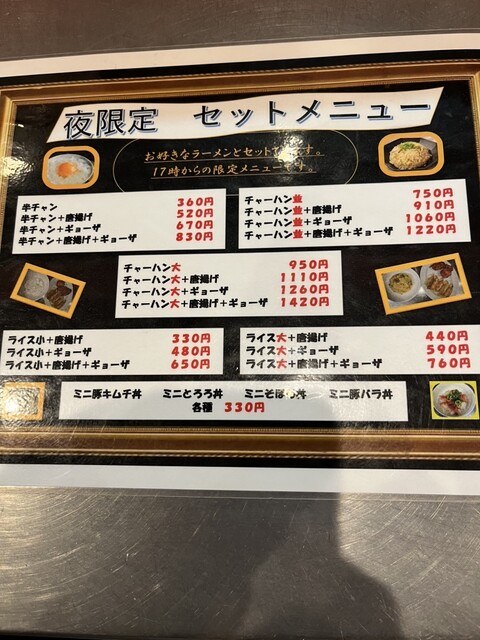 夜限定 セットメニュー
お好きなラーメンとセットです。
17時からの限定メニューです。
半チャン 360円
半チャン+唐揚げ 520円
半チャン+ギョーザ 670円
半チャン+唐揚げ+ギョーザ 830円
チャーハン並 750円
チャーハン並+唐揚げ 910円
チャーハン並+ギョーザ 1060円
チャーハン並+唐揚げ+ギョーザ 1220円
チャーハン大 950円
チャーハン大+唐揚げ 1110円
チャーハン大+ギョーザ 1260円
チャーハン大+唐揚げ+ギョーザ 1420円
ライス小+唐揚げ 330円
ライス小+ギョーザ 480円
ライス小+唐揚げ+ギョーザ 650円
ライス大+唐揚げ 440円
ライス大+ギョーザ 590円
ライス大+唐揚げ+ギョーザ 760円
ミニ豚キムチ丼 ミニとろろ丼 ミニそぼろ丼 ミニ豚バラ丼
各種 330円